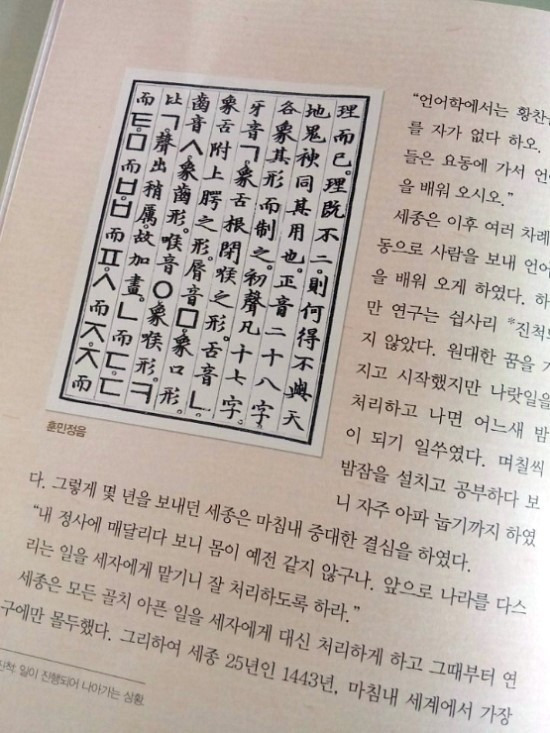 理而已。理既不二。則何得不與天
地鬼神同其用也。正音二十八字。
各象其形而制之。初聲凡十七字。
牙音ㄱ。象舌根閉喉之形。舌音ㄴ。
象舌附上腭之形。脣音ㅁ。象口形。
齒音ㅅ。象齒形。喉音ㅇ。象喉形。ㅋ
比ㄱ。聲出稍厲。故加畫。ㄴ而ㄷ。ㄷ
而ㅌ。ㅁ而ㅂ。ㅂ而ㅍ。ㅅ而ㅈ。ㅈ而
훈민정음
"언어학에서는 황찬을
를 자가 없다 하오.
들은 요동에 가서 언어
을 배워 오시오."
세종은 이후 여러 차례
동으로 사람을 보내 언어
을 배워 오게 하였다. 하
만 연구는 쉽사리 *진척되
지 않았다. 원대한 꿈을 가
지고 시작했지만 나랏일을
처리하고 나면 어느새 밤
이 되기 일쑤였다. 며칠씩
밤잠을 설치고 공부하다 보
니 자주 아파 눕기까지 하였
다. 그렇게 몇 년을 보내던 세종은 마침내 중대한 결심을 하였다.
"내 정사에 매달리다 보니 몸이 예전 같지 않구나. 앞으로 나라를 다스
리는 일을 세자에게 맡기니 잘 처리하도록 하라."
세종은 모든 골치 아픈 일을 세자에게 대신 처리하게 하고 그때부터 연
구에만 몰두했다. 그리하여 세종 25년인 1443년, 마침내 세계에서 가장
진척: 일이 진행되어 나아가는 상황.